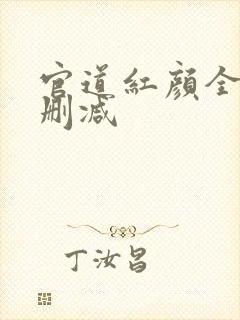 官道紅顏全
刪減
丁汝昌